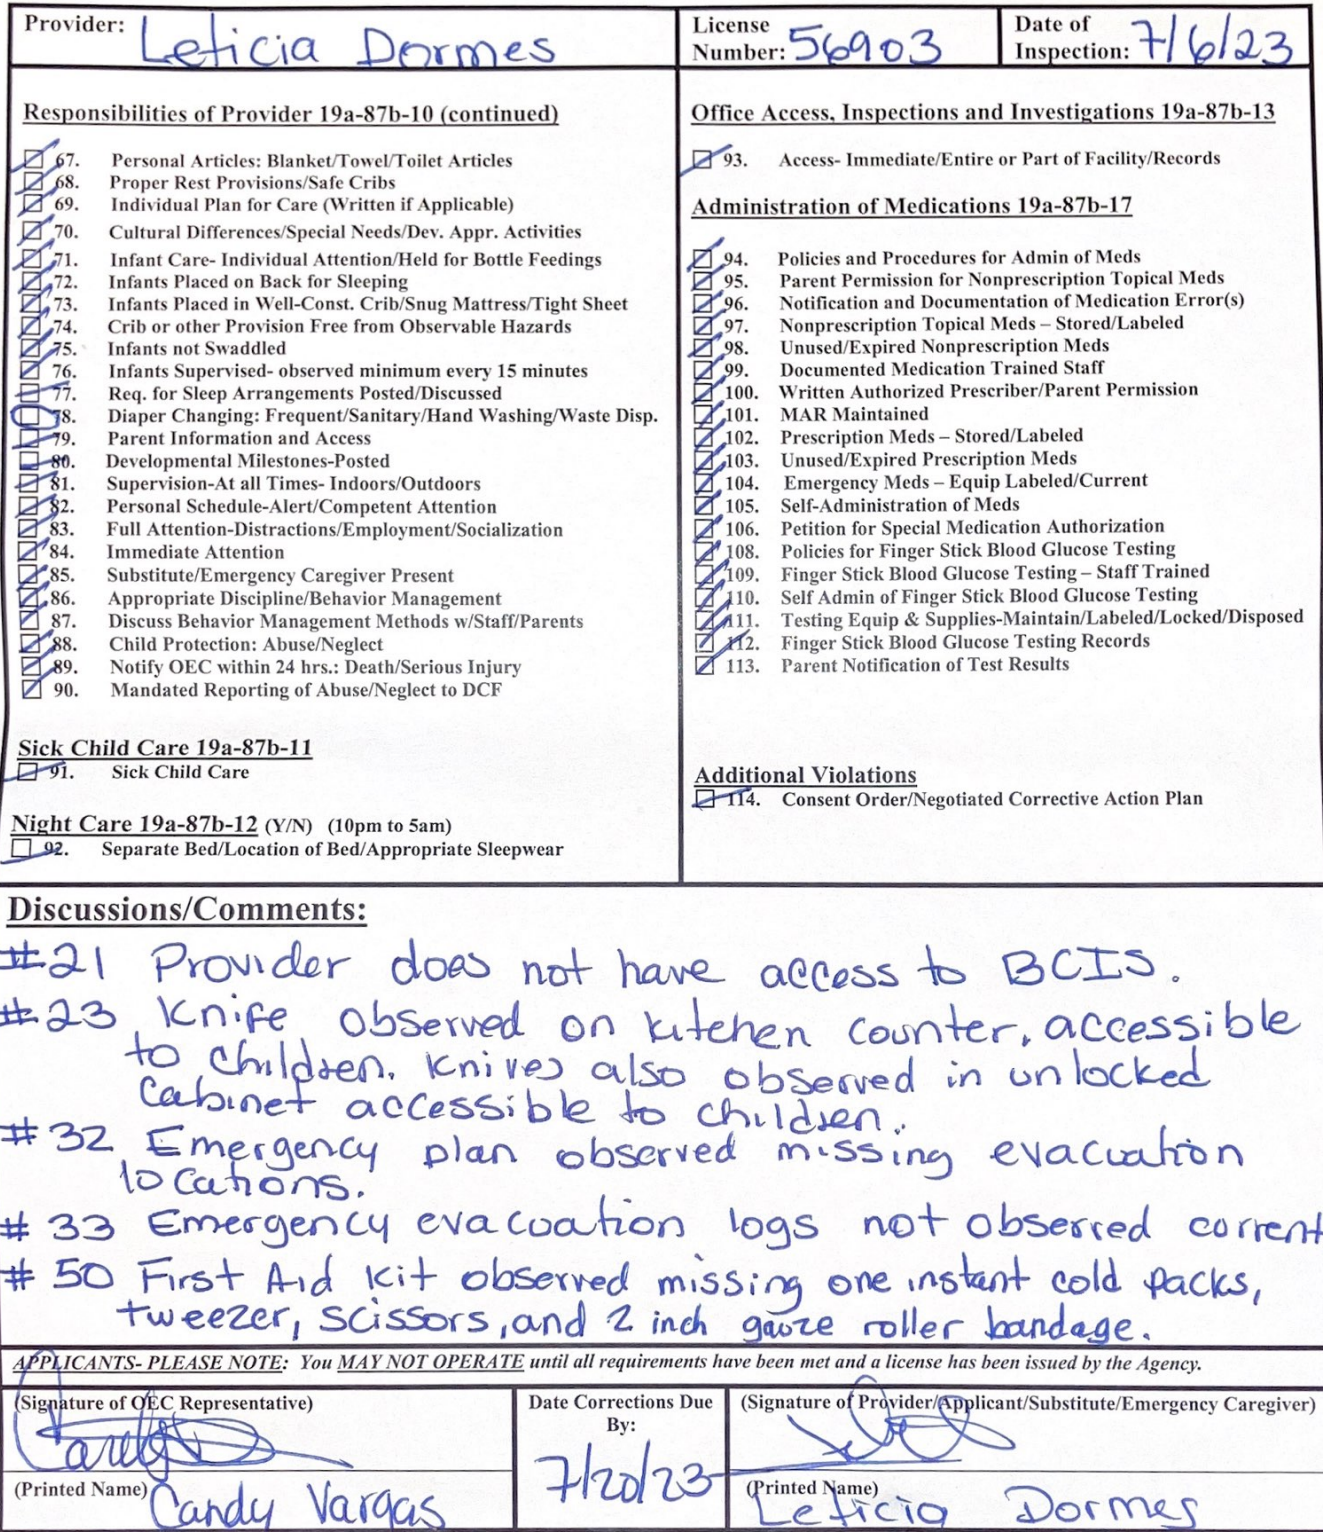 Provider: Leticia Dormes
License Number: 56903
Date of Inspection: 7/6/23
Responsibilities of Provider 19a-87b-10 (continued)
67. Personal Articles: Blanket/Towel/Toilet Articles
68. Proper Rest Provisions/Safe Cribs
69. Individual Plan for Care (Written if Applicable)
70. Cultural Differences/Special Needs/Dev. Appr. Activities
71. Infant Care- Individual Attention/Held for Bottle Feedings
72. Infants Placed on Back for Sleeping
73. Infants Placed in Well-Const. Crib/Snug Mattress/Tight Sheet
74. Crib or other Provision Free from Observable Hazards
75. Infants not Swaddled
76. Infants Supervised- observed minimum every 15 minutes
77. Req. for Sleep Arrangements Posted/Discussed
78. Diaper Changing: Frequent/Sanitary/Hand Washing/Waste Disp.
79. Parent Information and Access
80. Developmental Milestones-Posted
81. Supervision-At all Times- Indoors/Outdoors
82. Personal Schedule-Alert/Competent Attention
83. Full Attention-Distractions/Employment/Socialization
84. Immediate Attention
85. Substitute/Emergency Caregiver Present
86. Appropriate Discipline/Behavior Management
87. Discuss Behavior Management Methods w/Staff/Parents
88. Child Protection: Abuse/Neglect
89. Notify OEC within 24 hrs.: Death/Serious Injury
90. Mandated Reporting of Abuse/Neglect to DCF
Sick Child Care 19a-87b-11
91. Sick Child Care
Night Care 19a-87b-12 (Y/N) (10pm to 5am)
92. Separate Bed/Location of Bed/Appropriate Sleepwear
Office Access, Inspections and Investigations 19a-87b-13
93. Access- Immediate/Entire or Part of Facility/Records
Administration of Medications 19a-87b-17
94. Policies and Procedures for Admin of Meds
95. Parent Permission for Nonprescription Topical Meds
96. Notification and Documentation of Medication Error(s)
97. Nonprescription Topical Meds – Stored/Labeled
98. Unused/Expired Nonprescription Meds
99. Documented Medication Trained Staff
100. Written Authorized Prescriber/Parent Permission
101. MAR Maintained
102. Prescription Meds – Stored/Labeled
103. Unused/Expired Prescription Meds
104. Emergency Meds – Equip Labeled/Current
105. Self-Administration of Meds
106. Petition for Special Medication Authorization
108. Policies for Finger Stick Blood Glucose Testing
109. Finger Stick Blood Glucose Testing – Staff Trained
110. Self Admin of Finger Stick Blood Glucose Testing
111. Testing Equip & Supplies-Maintain/Labeled/Locked/Disposed
112. Finger Stick Blood Glucose Testing Records
113. Parent Notification of Test Results
Additional Violations
114. Consent Order/Negotiated Corrective Action Plan
Discussions/Comments:
#21 Provider does not have access to BCIS.
#23 Knife observed on kitchen counter, accessible
to children. Knives also observed in unlocked
cabinet accessible to children.
#32 Emergency plan observed missing evacuation
locations.
#33 Emergency evacuation logs not observed current
#50 First Aid Kit observed missing one instant cold packs,
tweezer, scissors, and 2 inch gauze roller bandage.
APPLICANTS- PLEASE NOTE: You MAY NOT OPERATE until all requirements have been met and a license has been issued by the Agency.
(Signature of OEC Representative)
(Printed Name) Candy Vargas
Date Corrections Due
By:
7/20/23
(Signature of Provider/Applicant/Substitute/Emergency Caregiver)
(Printed Name)
Leticia Dormes